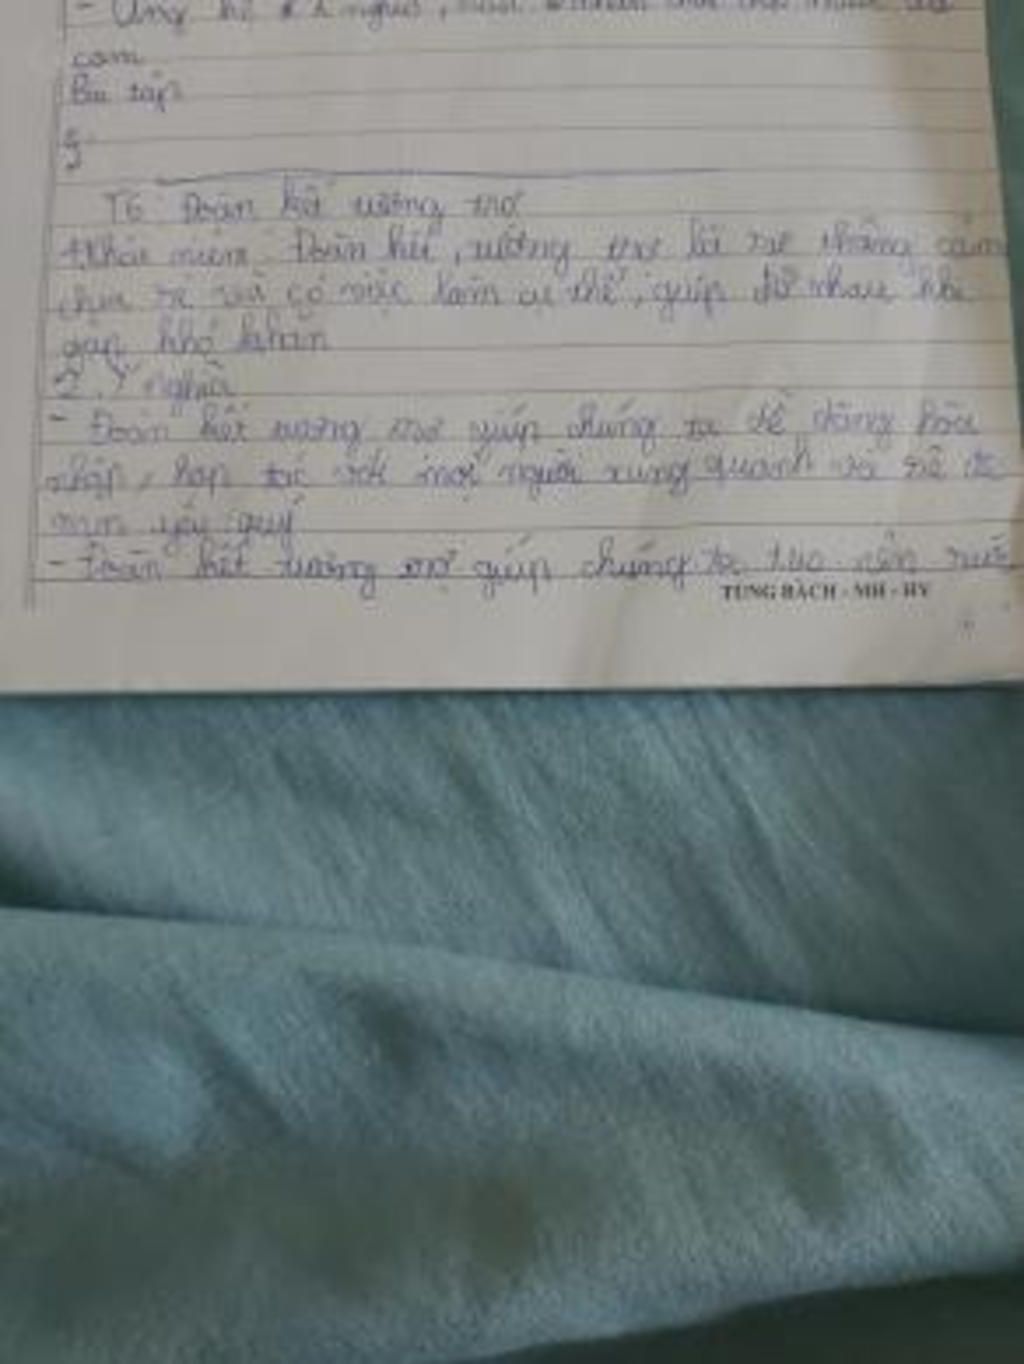 - Ủng hộ
cam
Bài tập
3
T6 Đoàn kết tương trợ
1 Khái niệm Đoàn kết, tương trợ là sự thông cảm
chia sẻ và có việc làm cụ thể, giúp đỡ nhau khi
gặp khó khăn
2. Ý nghĩa
- Đoàn kết tương trợ giúp chúng ta dễ dàng hòa
nhập, hợp tác với mọi người xung quanh và sẽ đc
mn yêu quý
- Đoàn kết tương trợ giúp chúng ta tạo nên sức
TÙNG BÁCH - MH - HY